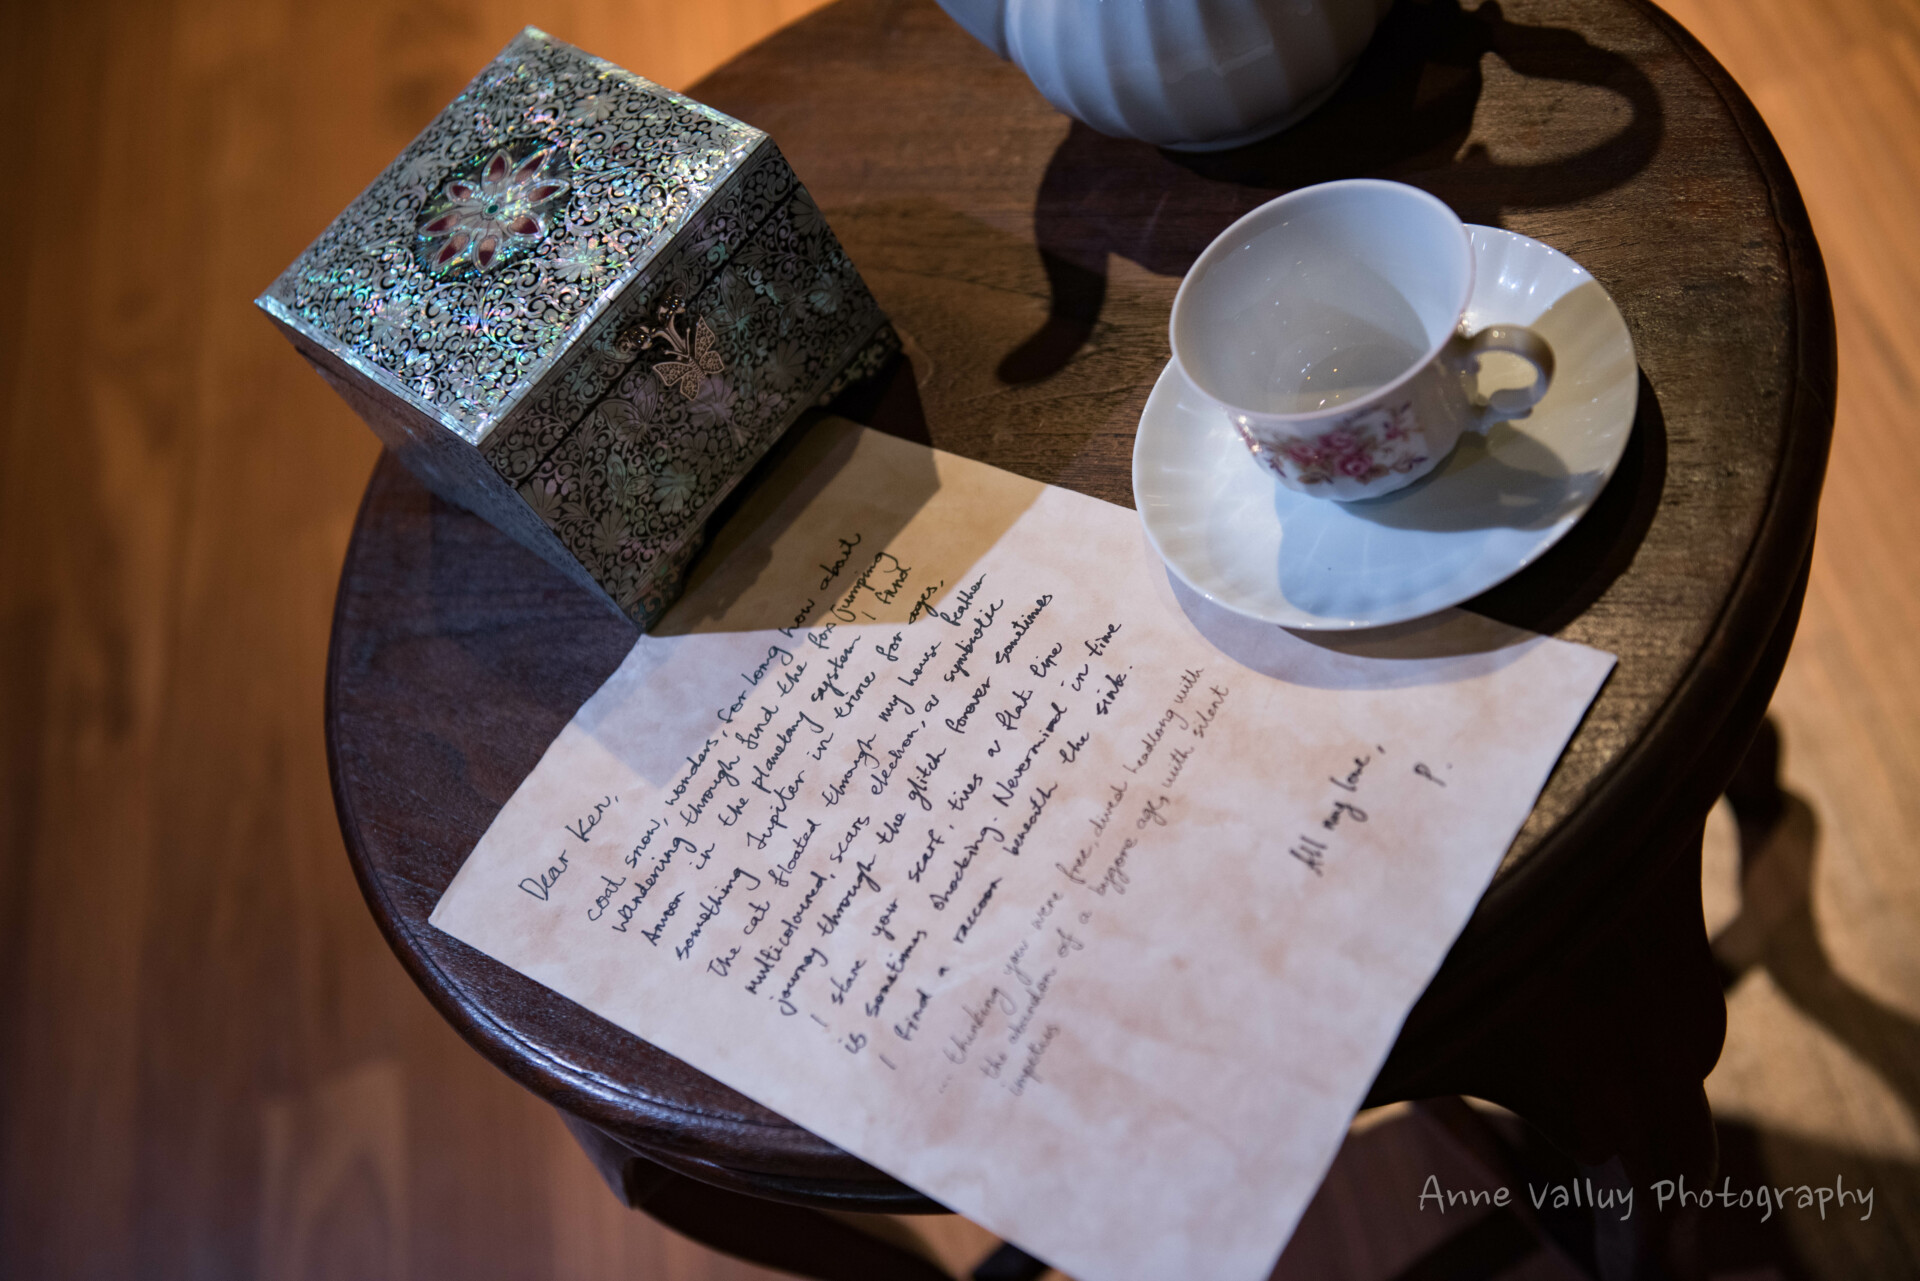 Dear Ken,
coat snow, wonders, for long how about
wandering through find the fox jumping
in the planetary system I find
something Jupiter in trine for ages,
The cat floated through my house feather
multicoloured, scars electron, a symbiotic
journey through the glitch forever sometimes
I stare your scarf, tires a flat line
is sometimes shocking. Nevermind in time
I find a raccoon beneath the sink.
... thinking you were free, dived headlong with
the abandon of a bygone age, with silent
impetus
All my love,
P.
Anne Valluy Photography